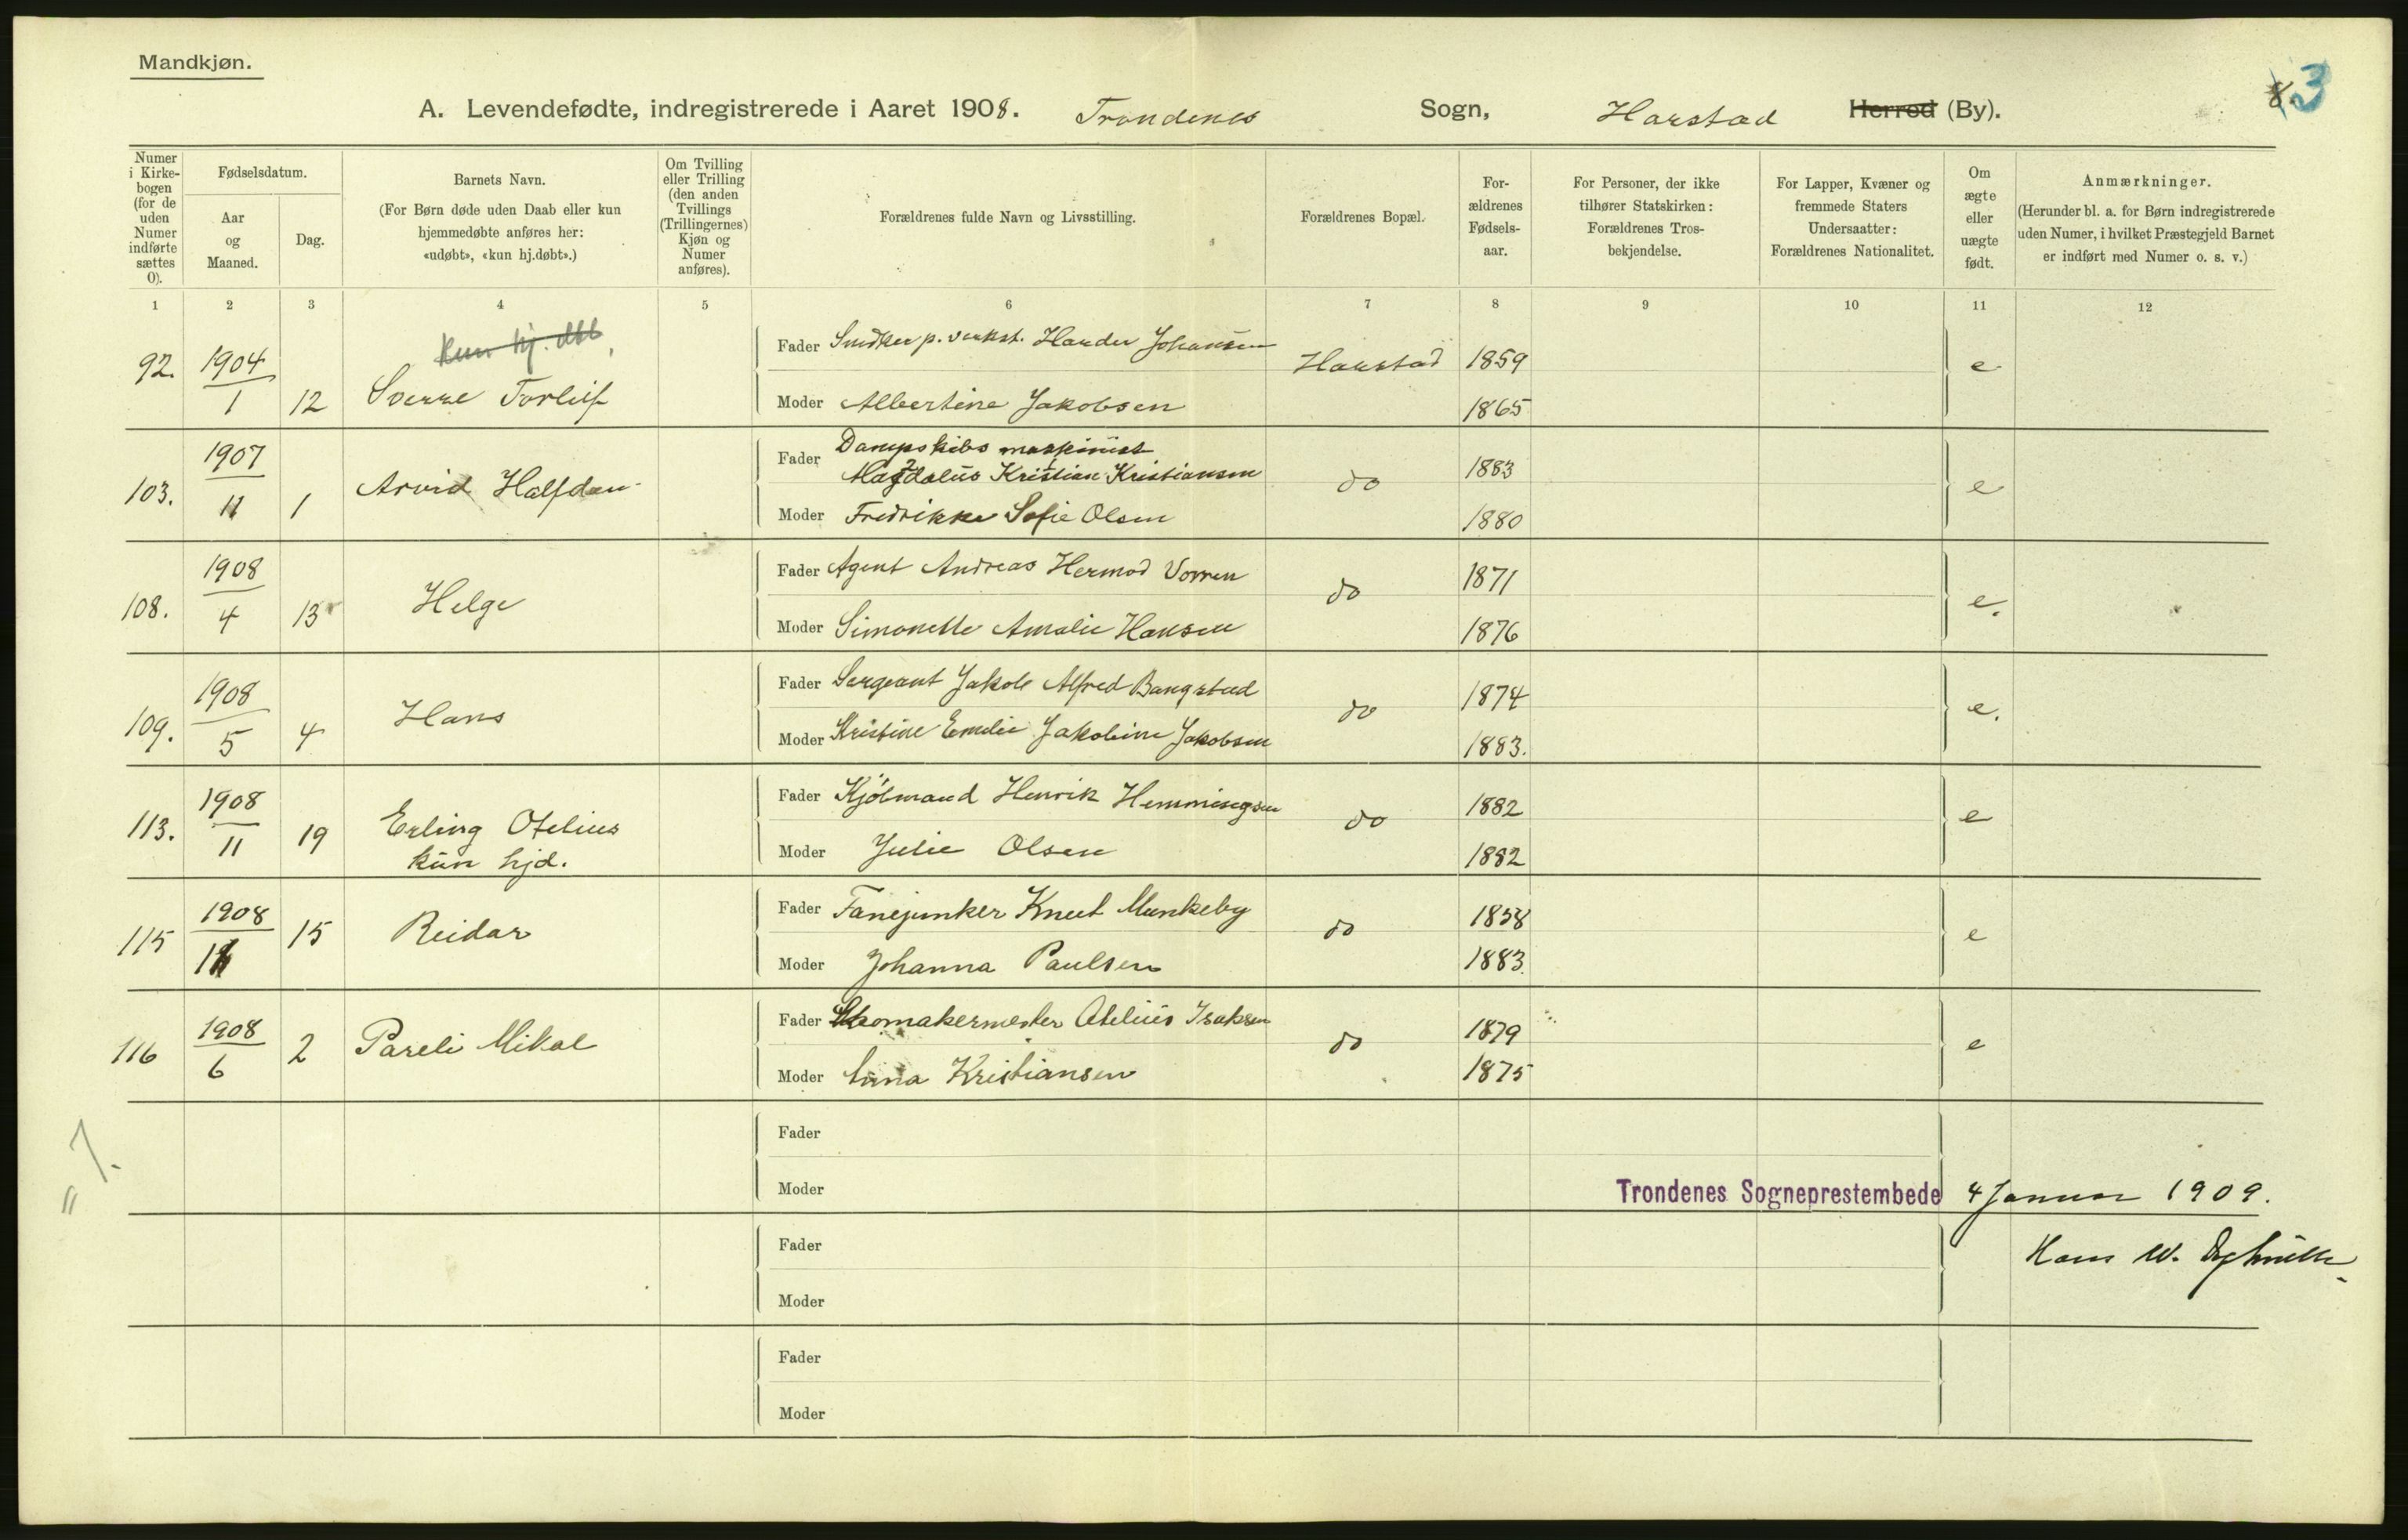 Mandkjøn.
8. 3
A. Levendefødte, indregistrerede i Aaret 1908. Trondenes Sogn, Harstad Herred (By).
Numer i Kirke-bogen (for de uden Numer indførte sættes 0).
Fødselsdatum.
Aar og Maaned.
Dag.
Barnets Navn.
(For Børn døde uden Daab eller kun
hjemmedøbte anføres her:
«udøbt», «kun hj.døbt».)
Om Tvilling eller Trilling (den anden Tvillings (Trillingernes) Kjøn og Numer anføres).
Forældrenes fulde Navn og Livsstilling.
Forældrenes Bopæl.
For-ældrenes Fødsels-aar.
For Personer, der ikke tilhører Statskirken: Forældrenes Tros-bekjendelse.
For Lapper, Kvæner og fremmede Staters Undersaatter: Forældrenes Nationalitet.
Om ægte eller uægte født.
Anmærkninger.
(Herunder bl. a. for Børn indregistrerede uden Numer, i hvilket Præstegjeld Barnet er indført med Numer o. s. v.)
1 2 3 4 5 6 7 8 9 10 11 12
kun hj. dbt
92. 1904 1 12 Sverre Torleif
Fader Snidker p. verkst. Harder Johansen Harstad 1859 e
Moder Albertine Jakobsen 1865
103. 1907 11 1 Arvid Halfdan
Fader Dampskibs maskinist
Magdalus Kristian Kristiansen do 1883 e
Moder Fredrikke Sofie Olsen 1880
108. 1908 4 13 Helge
Fader Agent Andreas Hermod Vorren do 1871 e.
Moder Simonette Amalie Hansen 1876
109. 1908 5 4 Hans
Fader Sergeant Jakob Alfred Bangstad do 1874 e.
Moder Kristine Emelie Jakobine Jakobsen 1883.
113. 1908 11 19 Erling Otelius
kun hjd.
Fader Kjölmand Henrik Hemmingsen do 1882 e
Moder Julie Olsen 1882
115 1908 11 15 Reidar
Fader Fanejunker Knut Munkeby do 1858 e
Moder Johanna Paulsen 1883.
116 1908 6 2 Pareli Mikal
Fader Skomakermester Otelius Isaksen do 1879 e
Moder Anna Kristiansen 1875
Fader
Moder
7.
Trondenes Sogneprestembede 4 Januar 1909.
Fader
Hans W.
Moder
Fader
Moder